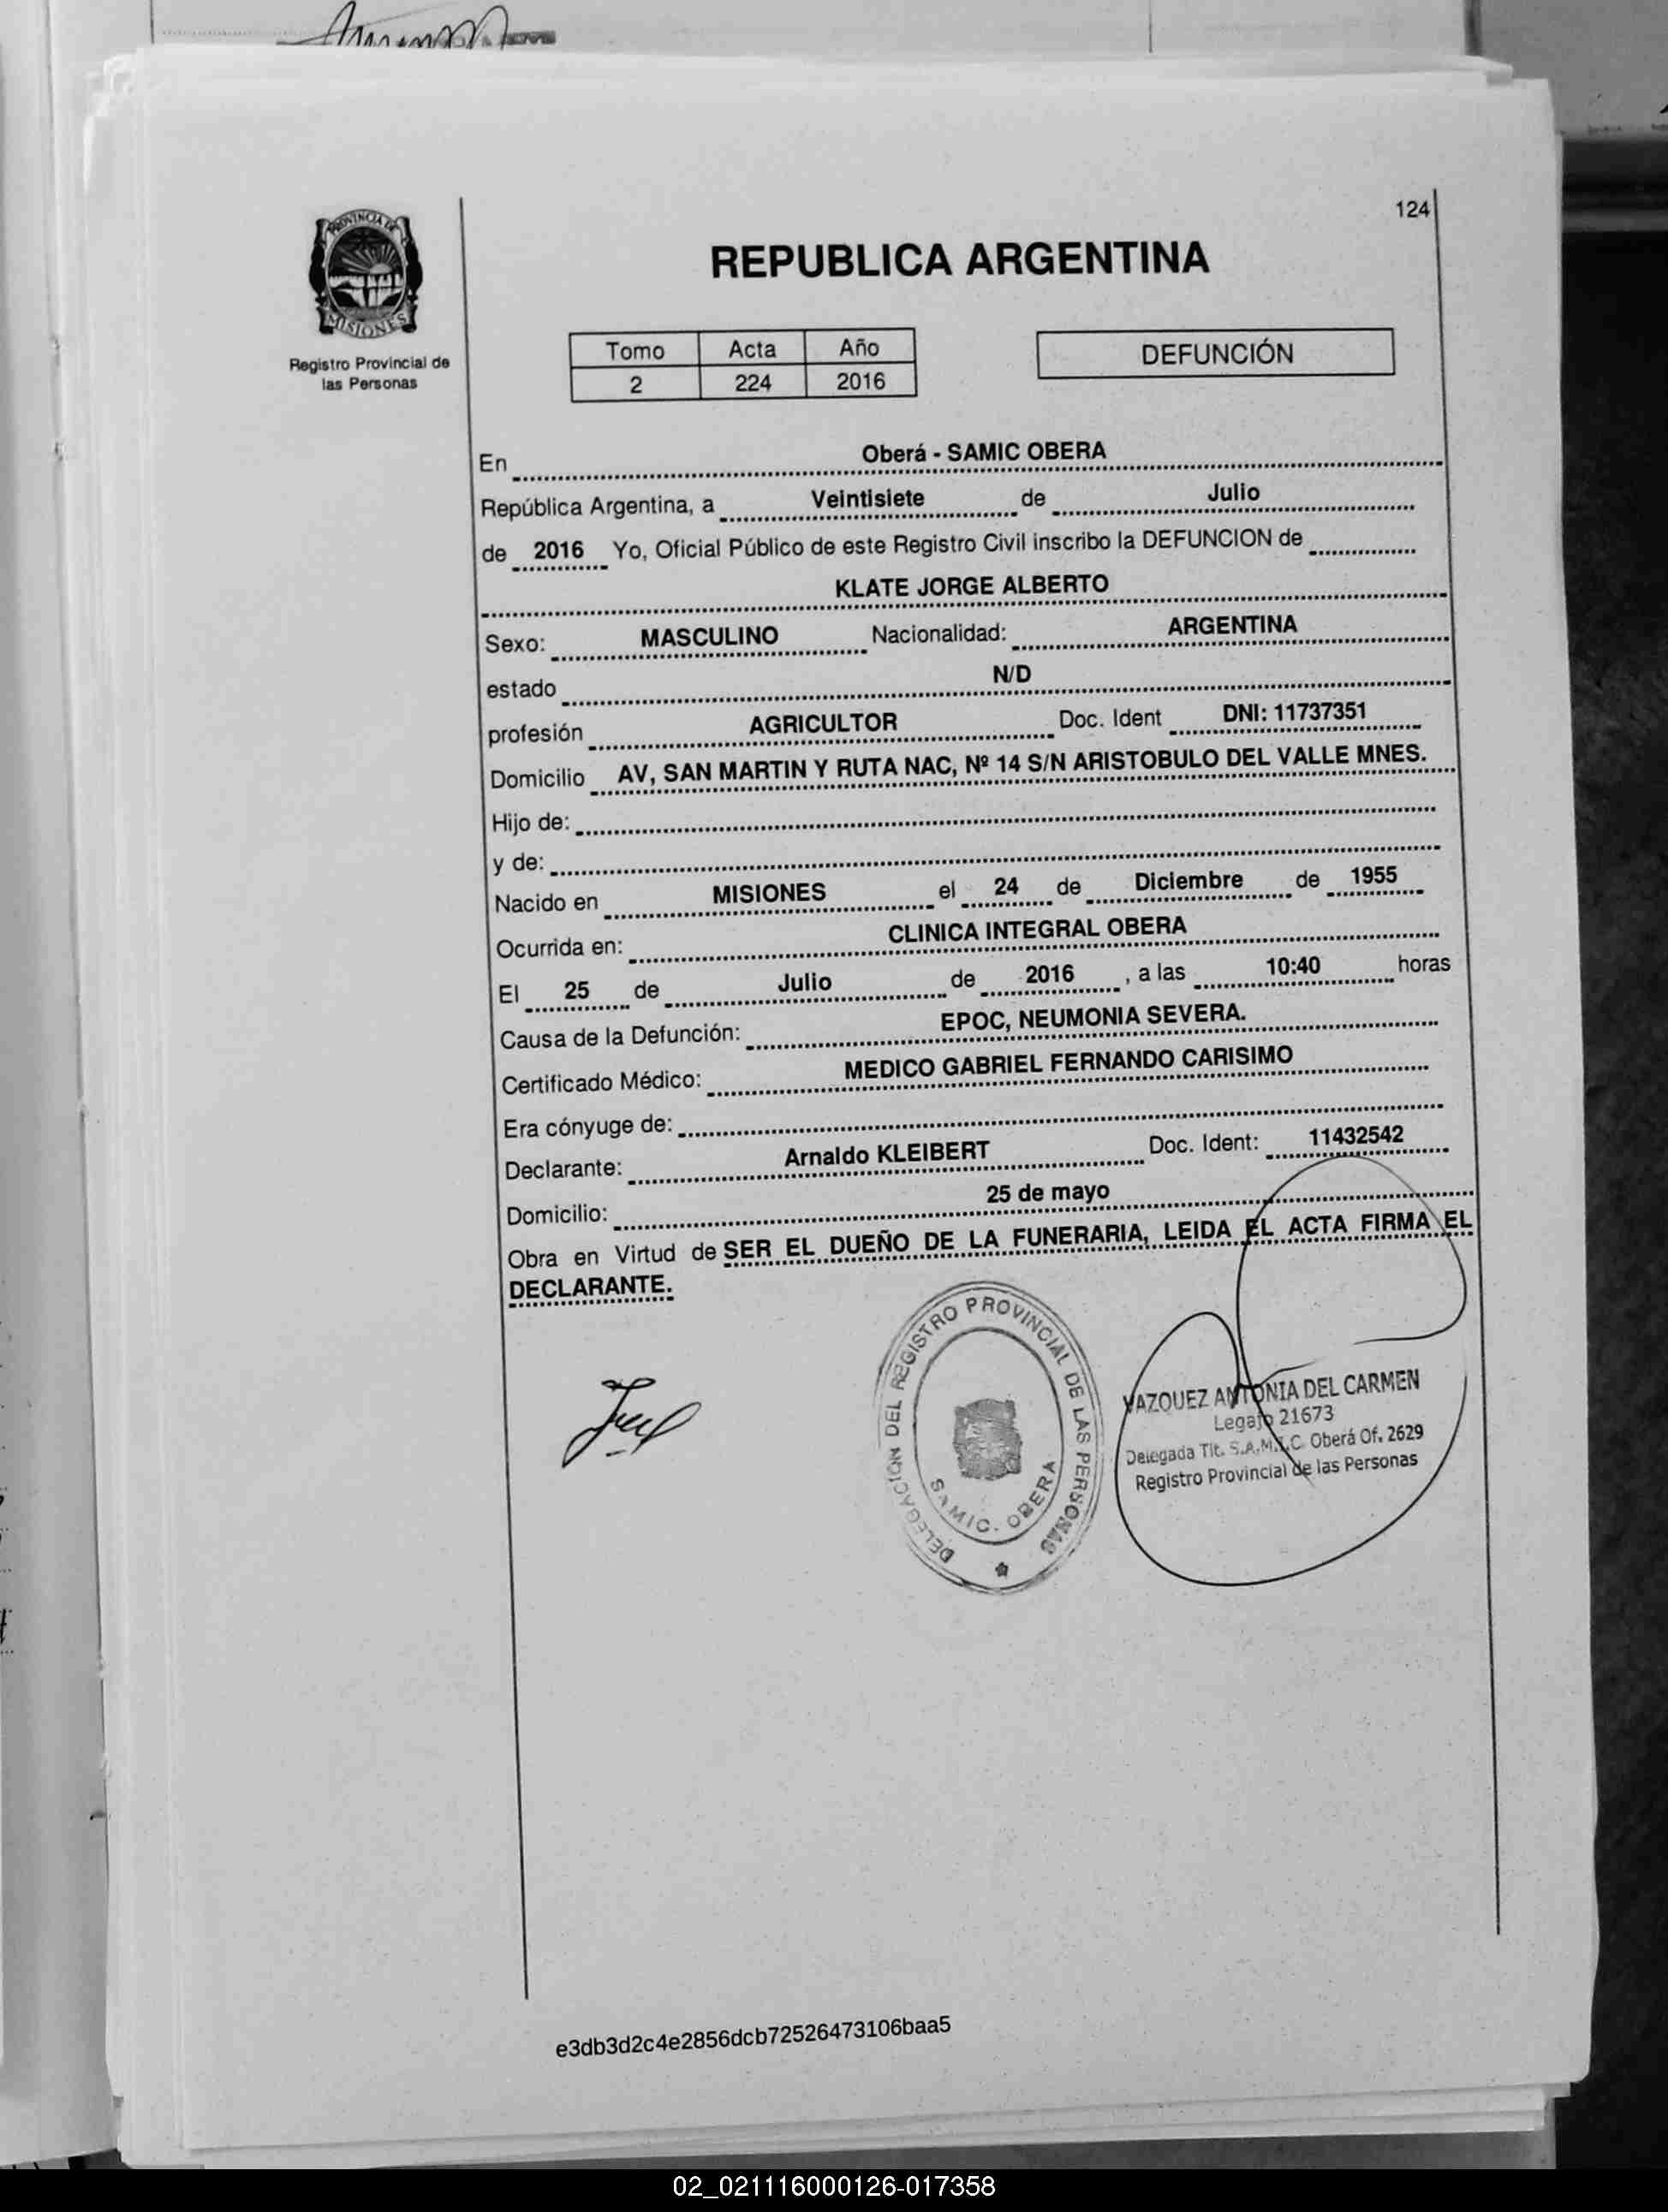 PROVINCIA DE
MISIONES
Registro Provincial de
las Personas
124
REPUBLICA ARGENTINA
Tomo Acta Año
2 224 2016
DEFUNCIÓN
En Oberá - SAMIC OBERA
República Argentina, a Veintisiete de Julio
de 2016 Yo, Oficial Público de este Registro Civil inscribo la DEFUNCION de
KLATE JORGE ALBERTO
Sexo: MASCULINO Nacionalidad: ARGENTINA
estado N/D
profesión AGRICULTOR Doc. Ident DNI: 11737351
Domicilio AV, SAN MARTIN Y RUTA NAC, Nº 14 S/N ARISTOBULO DEL VALLE MNES.
Hijo de:
y de:
Nacido en MISIONES el 24 de Diciembre de 1955
Ocurrida en: CLINICA INTEGRAL OBERA
El 25 de Julio de 2016 , a las 10:40 horas
Causa de la Defunción: EPOC, NEUMONIA SEVERA.
Certificado Médico: MEDICO GABRIEL FERNANDO CARISIMO
Era cónyuge de:
Declarante: Arnaldo KLEIBERT Doc. Ident: 11432542
Domicilio: 25 de mayo
Obra en Virtud de SER EL DUEÑO DE LA FUNERARIA, LEIDA EL ACTA FIRMA EL
DECLARANTE.
DELEGACIÓN DEL REGISTRO PROVINCIAL DE LAS PERSONAS
SAMIC. OBERA
VAZQUEZ ANTONIA DEL CARMEN
Legajo 21673
Delegada Tit. S.A.M.I.C. Oberá Of. 2629
Registro Provincial de las Personas
e3db3d2c4e2856dcb72526473106baa5
02_021116000126-017358